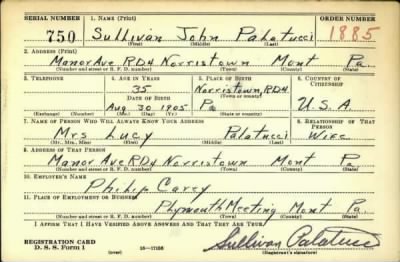 SERIAL NUMBER 1. NAME (Print) ORDER NUMBER
750 Sullivan John Palatucci 1885
(First) (Middle) (Last)
2. ADDRESS (Print)
Manor Ave RD4 Norristown Mont Pa.
(Number and street or R. F. D. number) (Town) (County) (State)
3. TELEPHONE 4. AGE IN YEARS 5. PLACE OF BIRTH 6. COUNTRY OF CITIZENSHIP
35 Norristown, RD4
DATE OF BIRTH (Town or county)
Aug 30 1905 Pa U.S.A.
(Exchange) (Number) (Mo.) (Day) (Yr.) (State or country)
7. NAME OF PERSON WHO WILL ALWAYS KNOW YOUR ADDRESS 8. RELATIONSHIP OF THAT PERSON
Mrs Lucy Palatucci Wife
(Mr., Mrs., Miss) (First) (Middle) (Last)
9. ADDRESS OF THAT PERSON
Manor Ave RD4 Norristown Mont Pa
(Number and street or R. F. D. number) (Town) (County) (State)
10. EMPLOYER'S NAME
Philip Carey
11. PLACE OF EMPLOYMENT OR BUSINESS
Plymouth Meeting Mont Pa.
(Number and street or R. F. D. number) (Town) (County) (State)
I AFFIRM THAT I HAVE VERIFIED ABOVE ANSWERS AND THAT THEY ARE TRUE.
REGISTRATION CARD Sullivan Palatucci
D. S. S. Form 1 (over) (Registrant's signature)